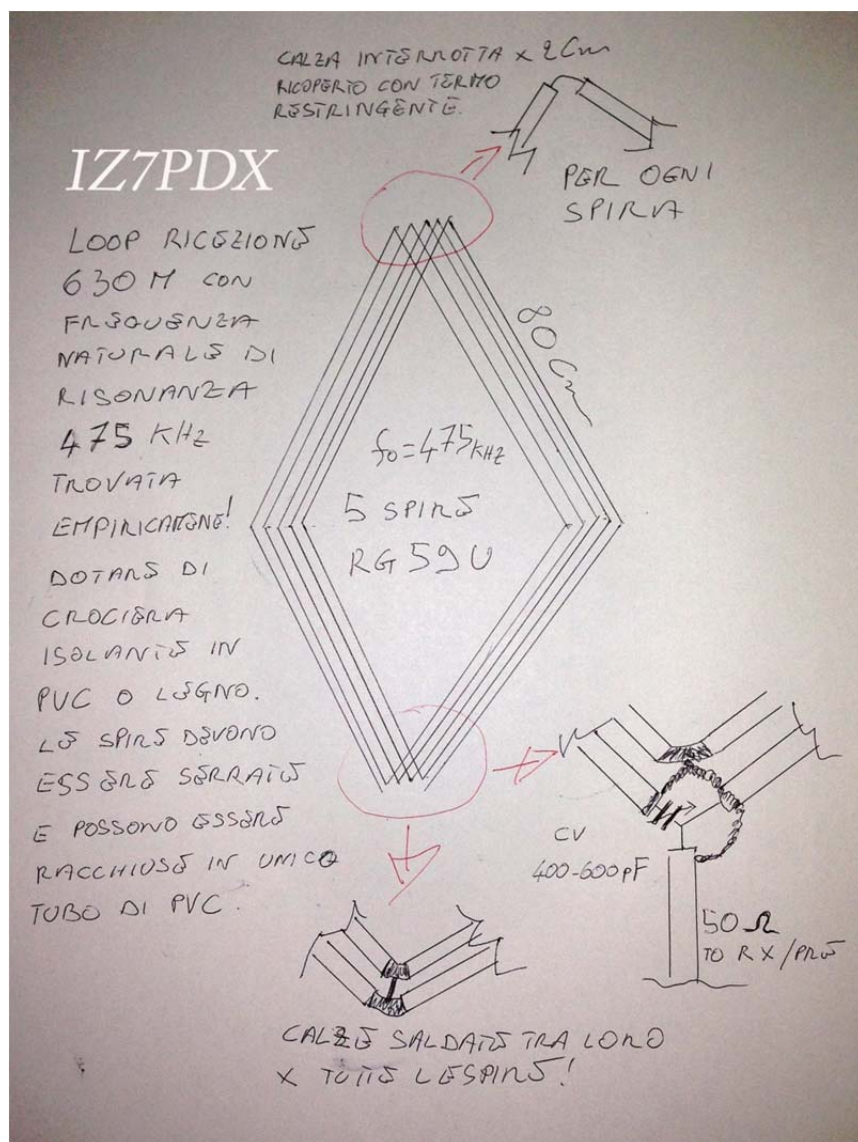 CALZA INTERROTTA x 2 Cm
RICOPERTO CON TERMO
RESTRINGENTE.
PER OGNI
SPIRA
IZ7PDX
LOOP RICEZIONE
630 M CON
FREQUENZA
NATURALE DI
RISONANZA
475 KHz
TROVATA
EMPIRICAMENE!
DOTARE DI
CROCIERA
ISOLANTE IN
PVC O LEGNO.
LE SPIRE DEVONO
ESSERE SERRATE
E POSSONO ESSERE
RACCHIUSE IN UNICO
TUBO DI PVC.
80 Cm
fo=475 KHZ
5 SPIRE
RG 59 U
CV
400-600 pF
50 Ω
TO RX/PRE
CALZE SALDATE TRA LORO
X TUTTE LE SPIRE!